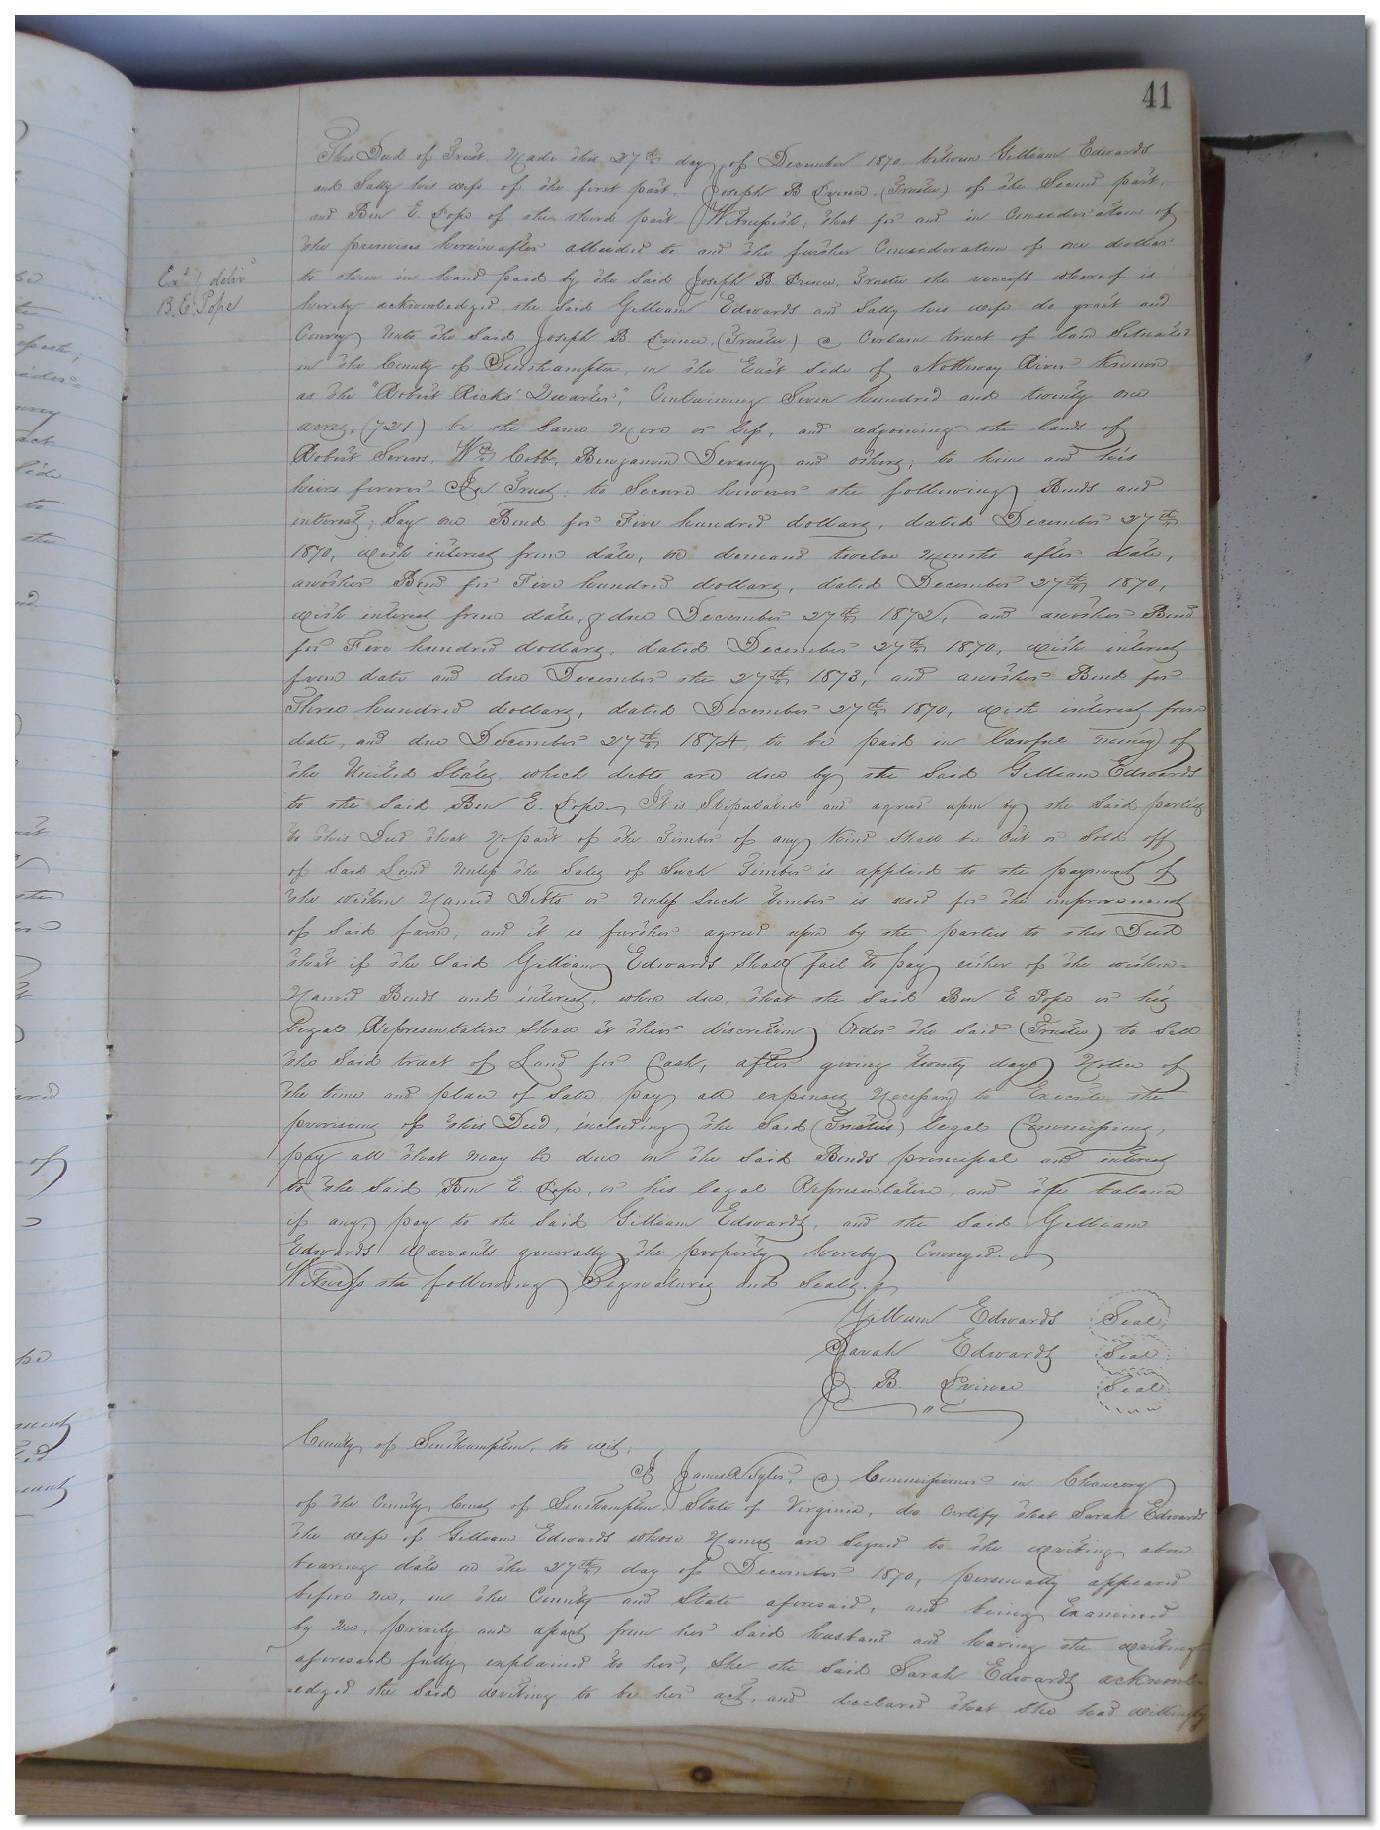 41
This Deed of Trust, Made this 27th day of December 1870, between Gilliam Edwards
and Sally his wife of the first part. Joseph B Prince (Trustee) of the Second part,
and Ben E. Pope of the third part Witnesseth; that for and in Consideration of
the premises herein after alluded to and the further Consideration of one dollar
to them in hand paid by the Said Joseph B. Prince, Trustee the receipt whereof is
Exd & delivd
B. E. Pope
hereby acknowledged the Said Gilliam Edwards and Sally his wife do grant and
Convey Unto the Said Joseph B. Prince, (Trustee) a Certain tract of land Situated
in the County of Southampton, on the East Side of Nottoway River Known
as the "Robert Ricks' Quarter", Containing Seven hundred and twenty one
acres, (721) be the Same More or less, and adjoining the lands of
Robert Wm Cobb, Benjamin Devany and others; to him and his
heirs forever In Trust; to Secure however the following Bonds and
interest; Say one Bond for Five hundred dollars, dated December 27th
1870, with interest from date, on demand twelve Months after date,
another Bond for Five hundred dollars, dated December 27th 1870,
with interest from date, & due December 27th 1872, and another Bond
for Five hundred dollars, dated December 27th 1870, with interest
from date and due December the 27th 1873; and another Bond for
Three hundred dollars, dated December 27th 1870, with interest from
date, and due December 27th 1874, to be paid in lawful money of
the United States, which debts are due by the Said Gilliam Edwards
to the Said Ben E. Pope. It is Stipulated and agreed upon by the Said parties
to this Deed that No part of the Timber of any Kind Shall be Cut or Sold off
of Said Land Unless the Sales of Such Timber is applied to the payment of
the within Named Debts or Unless Such timber is used for the improvement
of Said farm, and it is further agreed upon by the parties to this Deed
that if the Said Gilliam Edwards Shall fail to pay either of the within-
Named Bonds and interest, when due, that the Said Ben E Pope or his
legal Representative Shall at their discretion Order the Said (Trustee) to Sell
the Said tract of Land for Cash, after giving twenty days Notice of
the time and place of Sale, pay all expenses Necessary to Execute the
provisions of this Deed, including the Said (Trustees) legal Commissions,
pay all that may be due on the Said Bonds principal and interest
to the Said Ben E. Pope, or his legal Representative, and the balance
if any, pay to the Said Gilliam Edwards, and the Said Gilliam
Edwards Warrants generally the property hereby Conveyed.
Witness the following Signatures and Seals.
Gilliam Edwards Seal
Sarah Edwards Seal
J. B. Prince Seal
County of Southampton, to wit;
I James R Tyler, a Commissioner in Chancery
of the County Court of Southampton, State of Virginia, do Certify that Sarah Edwards
the wife of Gilliam Edwards whose Names are Signed to the writing above
bearing date on the 27th day of December 1870, personally appeared
before me, in the County and State aforesaid, and being Examined
by me, privily and apart from her Said husband and having the writing
aforesaid fully explained to her, She the Said Sarah Edwards acknowl-
edged the Said writing to be her act, and declared that She had willingly